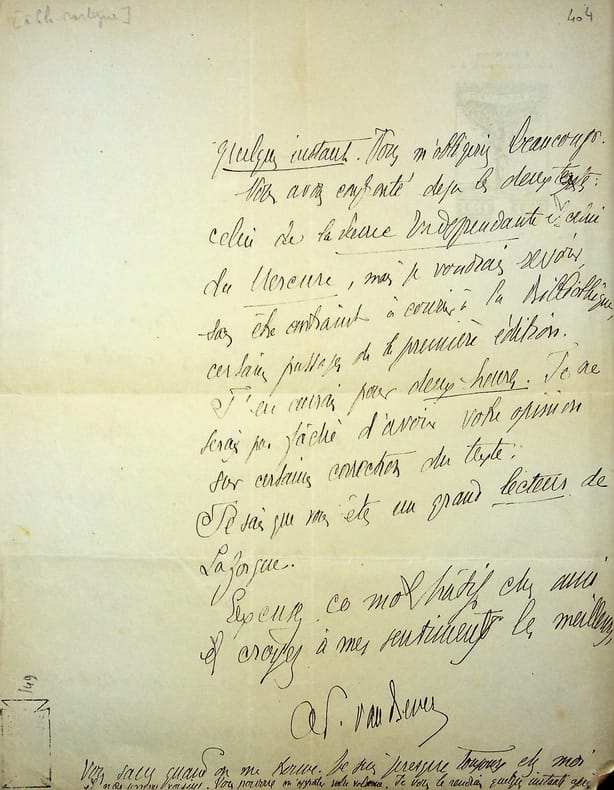 [à Ch. Martyne]
404
quelques instant. Vous m'obligeriez beaucoup.
Vous avez confronté déjà les deux textes:
celui de la Revue Indépendante & celui
du Mercure, mais je voudrais revoir,
sans être contraint à courir à la Bibliothèque,
certains passages de la première édition.
J'en aurais pour deux heures. Je ne
serais pas fâché d'avoir votre opinion
sur certaines corrections du texte.
Je sais que vous êtes un grand lecteur de
Laforgue.
Excusez ce mot hâtif cher ami
et croyez à mes sentiments les meilleurs
Ad. van Bever
149
Vous savez quand on me trouve. Je suis presque toujours chez moi
Vous pourriez m'apporter votre volume. Je vous le rendrai quelques instants après